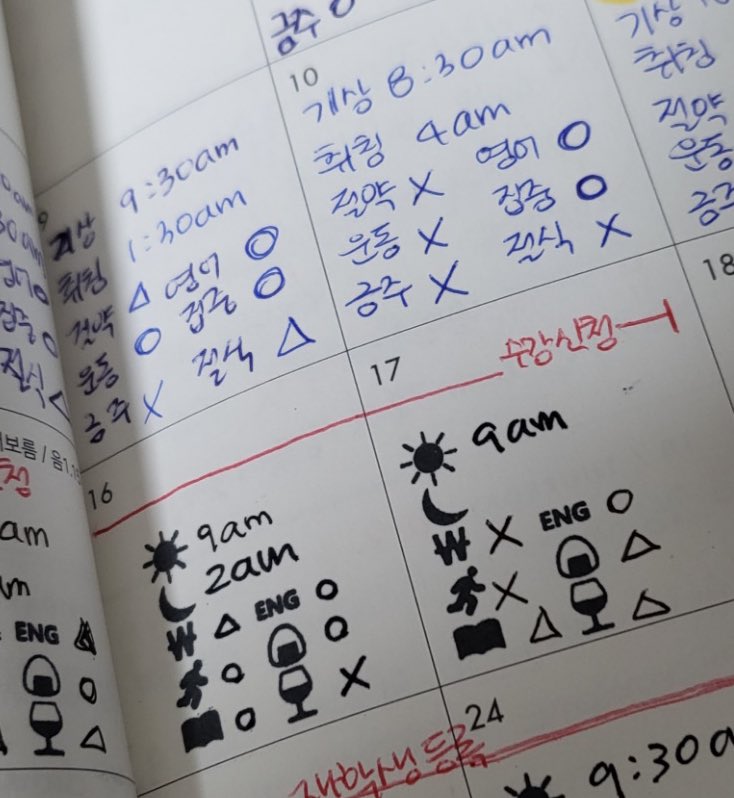 금주 O
9
기상 9:30am
취침 1:30am
절약 △ 영어 O
운동 O 집중 O
금주 X 절식 △
10
기상 8:30am
취침 4am
절약 X 영어 O
운동 X 집중 O
금주 X 절식 X
기상
취침
절약
운동
금주
영어 O
집중 O
절식 △
보름 / 음1.15
수강신청
16
9am
2am
₩ △ ENG O
O O
O X
17
9am
₩ X ENG O
X △
△ △
18
am
ENG
O
△
재학생 등록
24
9:30a